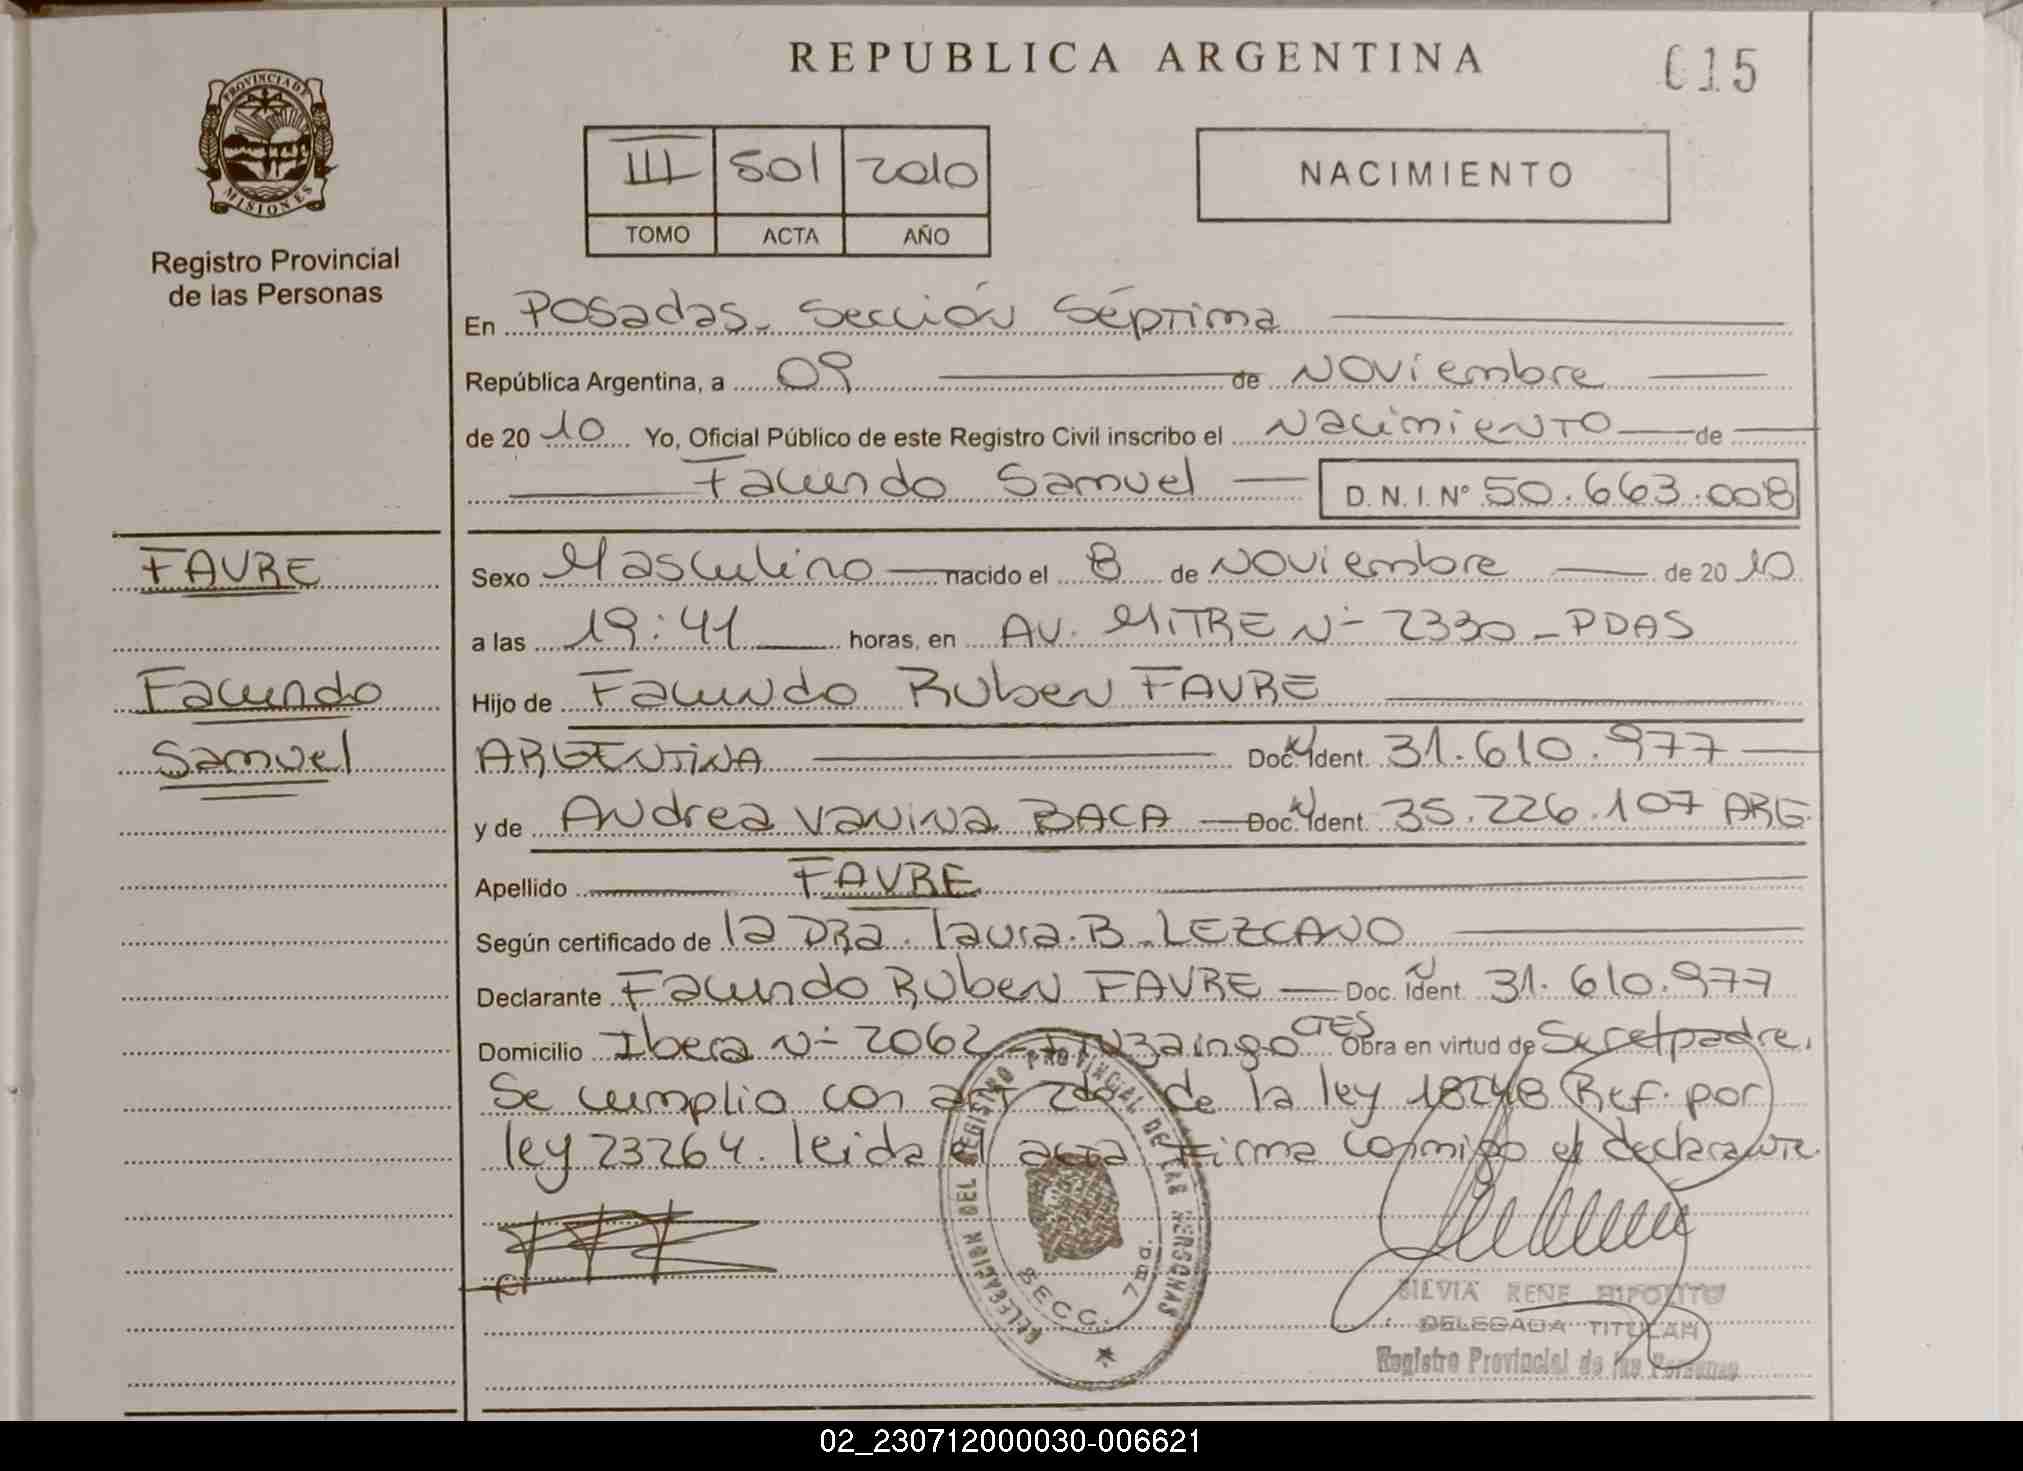 REPUBLICA ARGENTINA
015
PROVINCIA DE
MISIONES
Registro Provincial
de las Personas
III 501 2010
TOMO ACTA AÑO
NACIMIENTO
En Posadas. Sección Séptima
República Argentina, a 09 de Noviembre
de 2010 Yo, Oficial Público de este Registro Civil inscribo el Nacimiento de
Facundo Samuel D.N.I. Nº 50.663.008
FAVRE
Facundo
Samuel
Sexo Masculino nacido el 8 de Noviembre de 2010
a las 19:41 horas, en AV. MITRE Nº 2330 - PDAS
Hijo de Facundo Ruben FAVRE
ARGENTINA Doc. Ident. 31.610.977
y de Andrea Vanina BACA Doc. Ident. 35.226.107 ARG.
Apellido FAVRE
Según certificado de la DRA. Laura.B.LEZCANO
Declarante Facundo Ruben FAVRE Doc. Ident. 31.610.977
Domicilio Ibera Nº 2062 - Ituzaingo CTES Obra en virtud de Ser el padre.
Se cumplio con art 2do de la ley 18248 Ref. por
ley 23264. leida el acta firma conmigo el declarante.
DELEGACION DEL REGISTRO PROVINCIAL DE LAS PERSONAS
SECC. 7ma.
SILVIA RENE HIPOLITO
DELEGADA TITULAR
Registro Provincial de las Personas
02_230712000030-006621